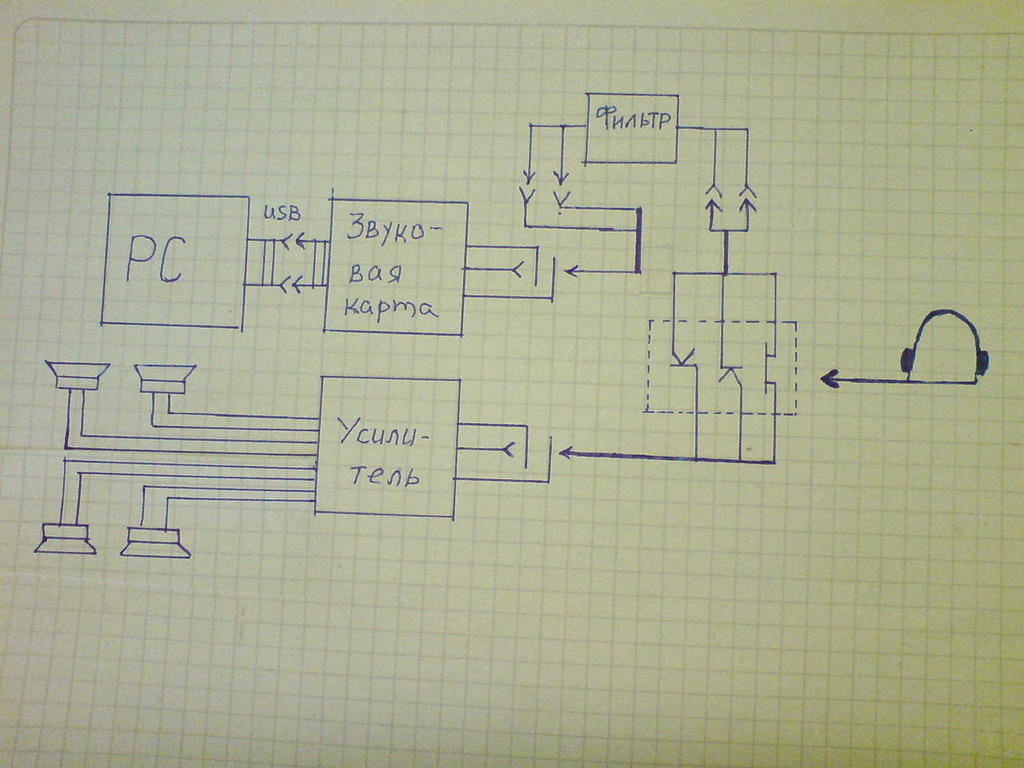 Фильтр
USB
PC
Звуко-
вая
карта
Усили-
тель